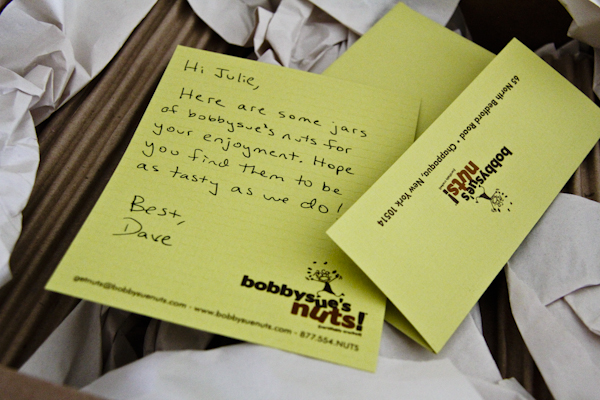 Hi Julie,
Here are some jars
of bobbysue's nuts for
your enjoyment. Hope
you find them to be
as tasty as we do!
Best,
Dave
bobbysue's
nuts!
getnuts@bobbysuenuts.com - www.bobbysuenuts.com - 877.554.NUTS
65 North Bedford Road • Chappaqua, New York 10514
bobbysue's
nuts!